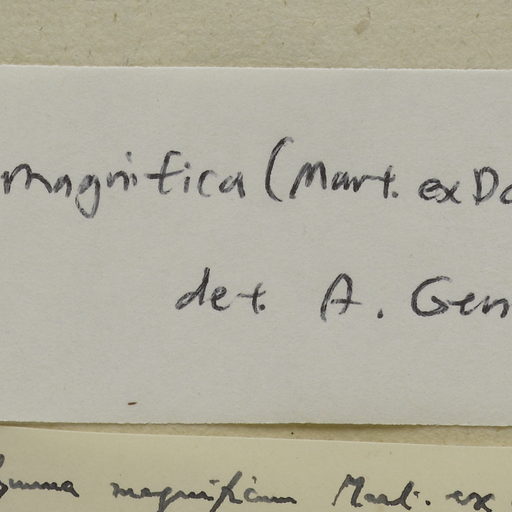 magnifica (Mart. ex Dc
det. A. Gen
magnificum Mart. ex